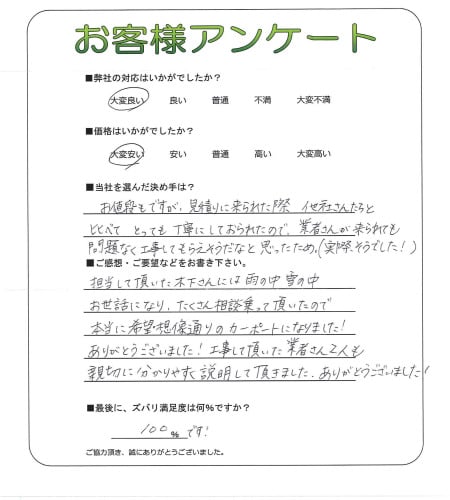 お客様アンケート
■弊社の対応はいかがでしたか？
大変良い 良い 普通 不満 大変不満
■価格はいかがでしたか？
大変安い 安い 普通 高い 大変高い
■当社を選んだ決め手は？
お値段もですが、見積りに来られた際 他社さんたちと
比べて とっても丁寧にしておられたので、業者さんが来られても
問題なく工事してもらえそうだなと思ったため。（実際そうでした！）
■ご感想・ご要望などをお書き下さい。
担当して頂いた木下さんには 雨の中 雪の中
お世話になり、たくさん相談乗って頂いたので
本当に希望想像通りの カーポートになりました！
ありがとうございました！ 工事して頂いた 業者さん2人も
親切に分かりやすく説明して頂きました。ありがとうございました！
■最後に、ズバリ満足度は何%ですか？
100%です！
ご協力頂き、誠にありがとうございました。